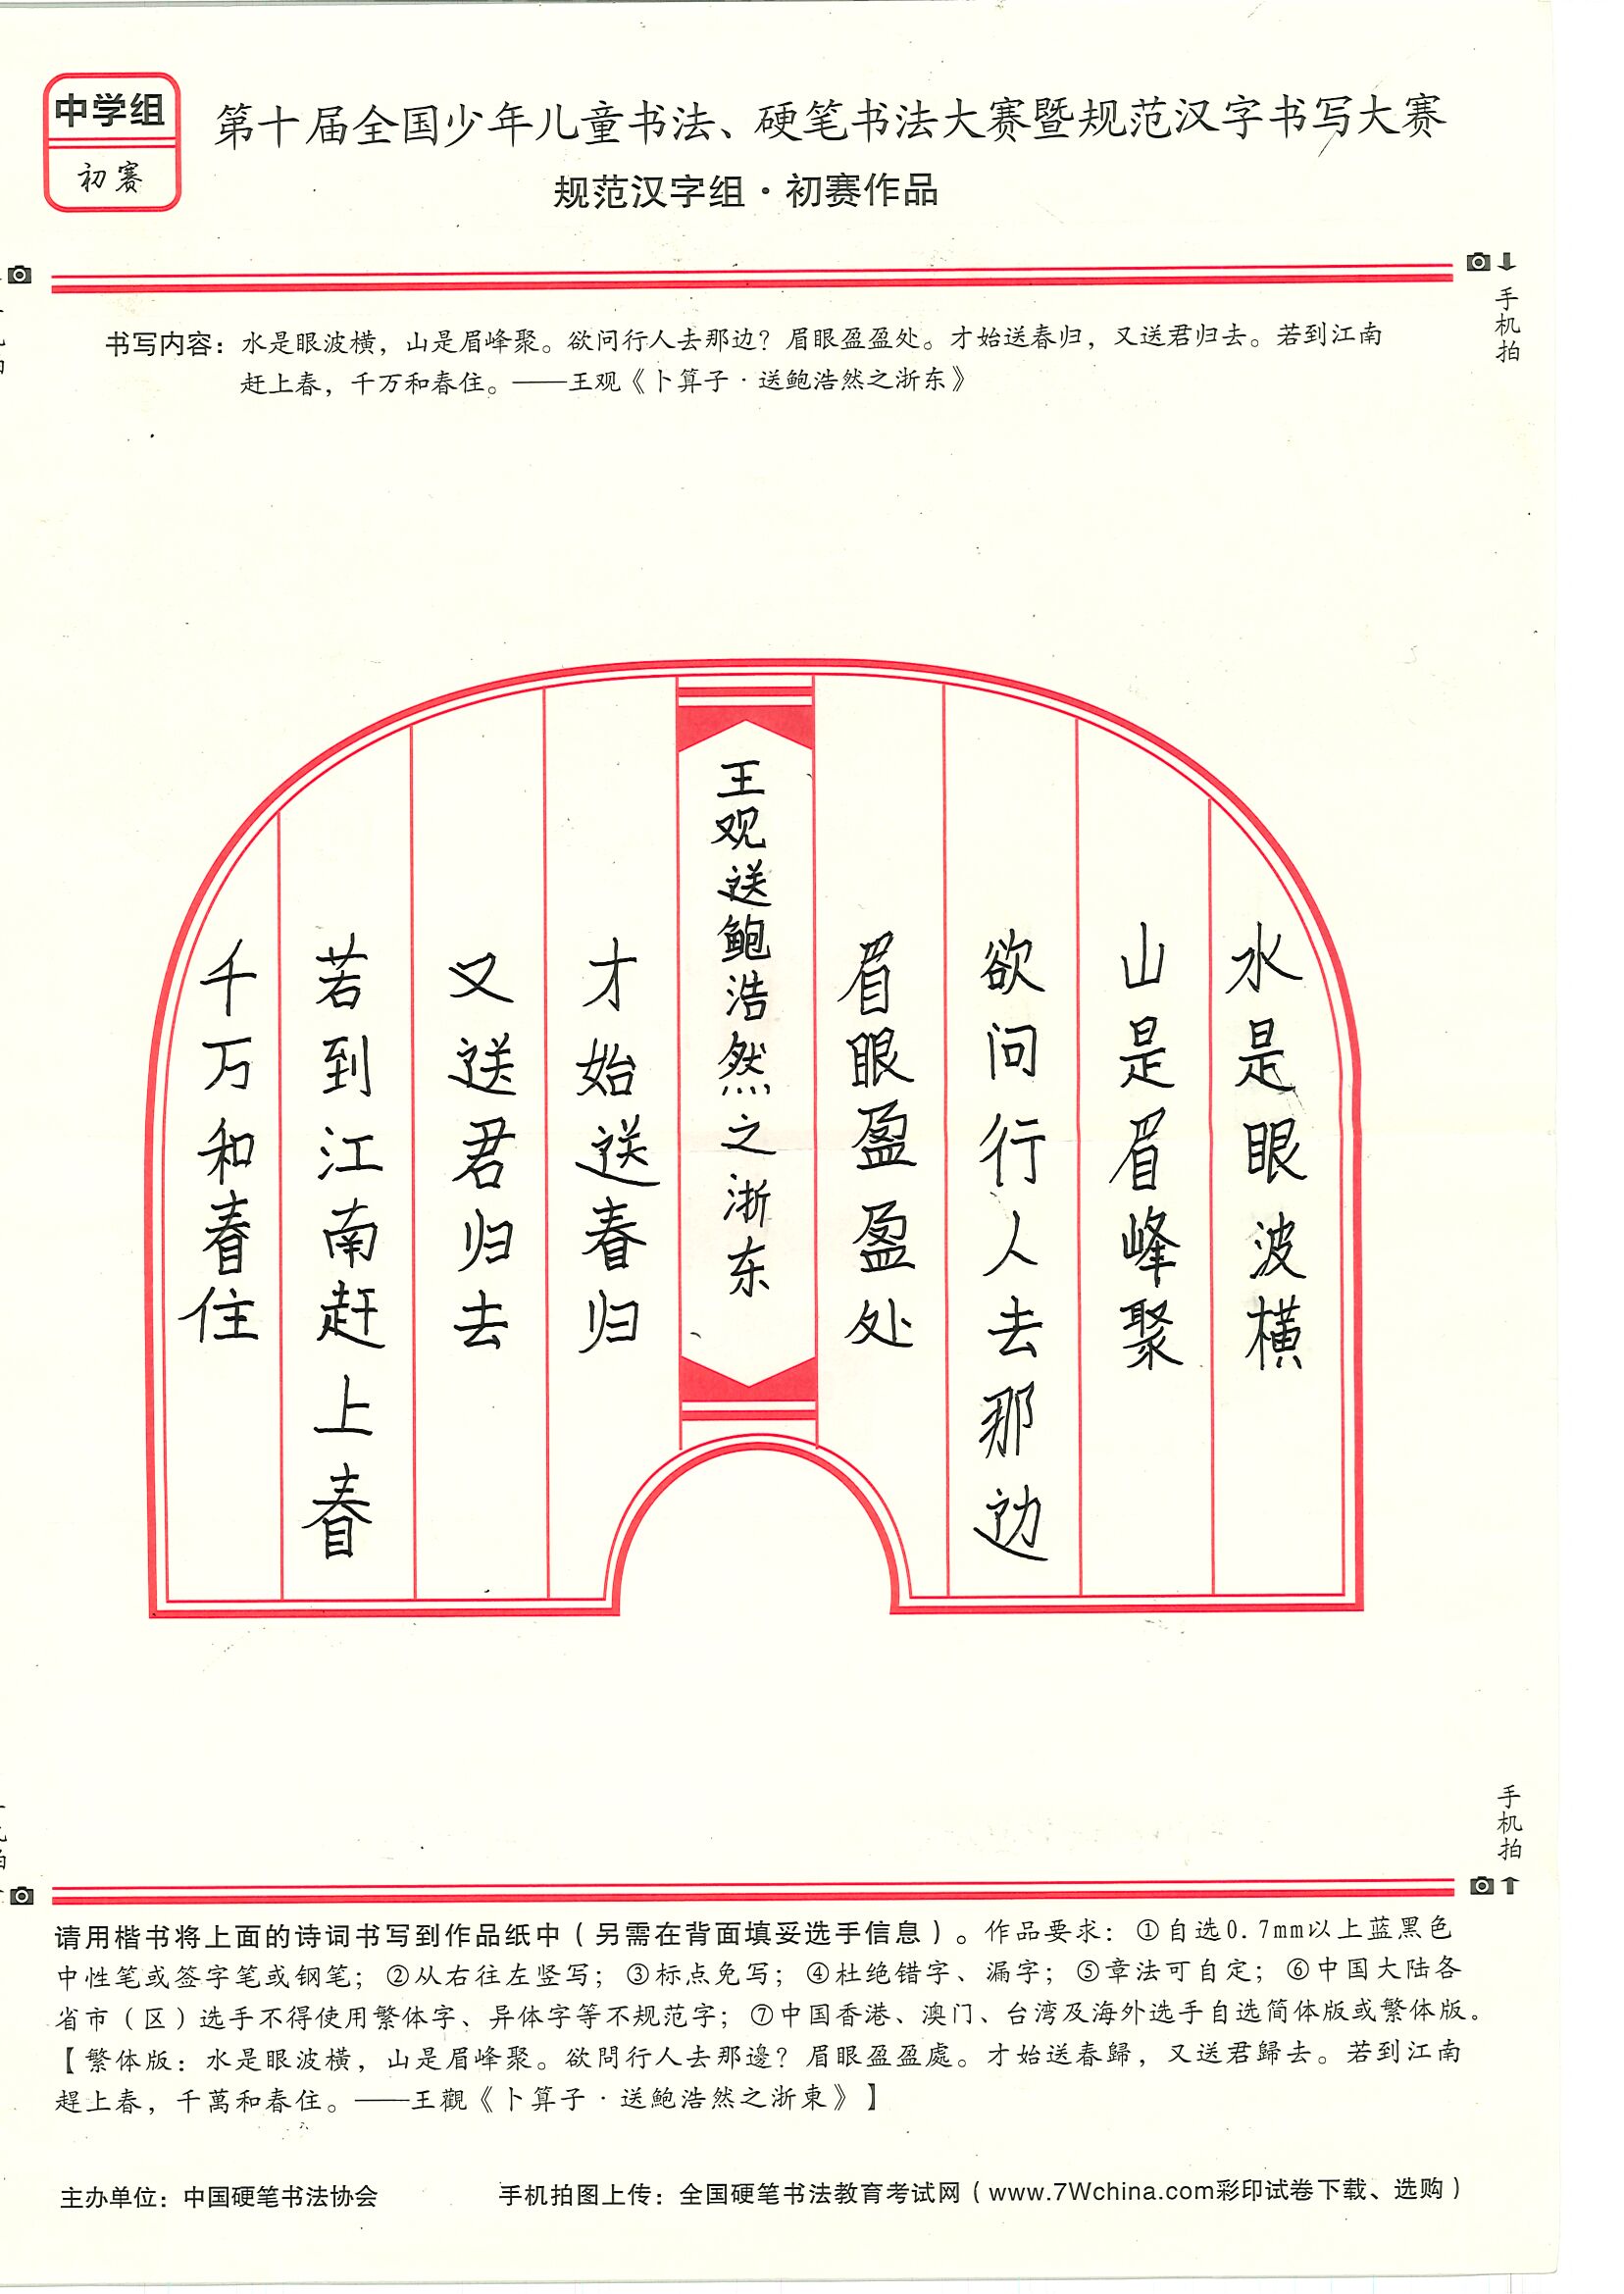 中学组
初赛
第十届全国少年儿童书法、硬笔书法大赛暨规范汉字书写大赛
规范汉字组·初赛作品
手机拍
书写内容：水是眼波横，山是眉峰聚。欲问行人去那边？眉眼盈盈处。才始送春归，又送君归去。若到江南
赶上春，千万和春住。——王观《卜算子·送鲍浩然之浙东》
水是眼波横
山是眉峰聚
欲问行人去那边
眉眼盈盈处
王观送鲍浩然之浙东
才始送春归
又送君归去
若到江南赶上春
千万和春住
手机拍
请用楷书将上面的诗词书写到作品纸中（另需在背面填妥选手信息）。作品要求：①自选0.7mm以上蓝黑色
中性笔或签字笔或钢笔；②从右往左竖写；③标点免写；④杜绝错字、漏字；⑤章法可自定；⑥中国大陆各
省市（区）选手不得使用繁体字、异体字等不规范字；⑦中国香港、澳门、台湾及海外选手自选简体版或繁体版。
【繁体版：水是眼波橫，山是眉峰聚。欲問行人去那邊？眉眼盈盈處。才始送春歸，又送君歸去。若到江南
趕上春，千萬和春住。——王觀《卜算子·送鮑浩然之浙東》】
主办单位：中国硬笔书法协会
手机拍图上传：全国硬笔书法教育考试网（www.7Wchina.com彩印试卷下载、选购）